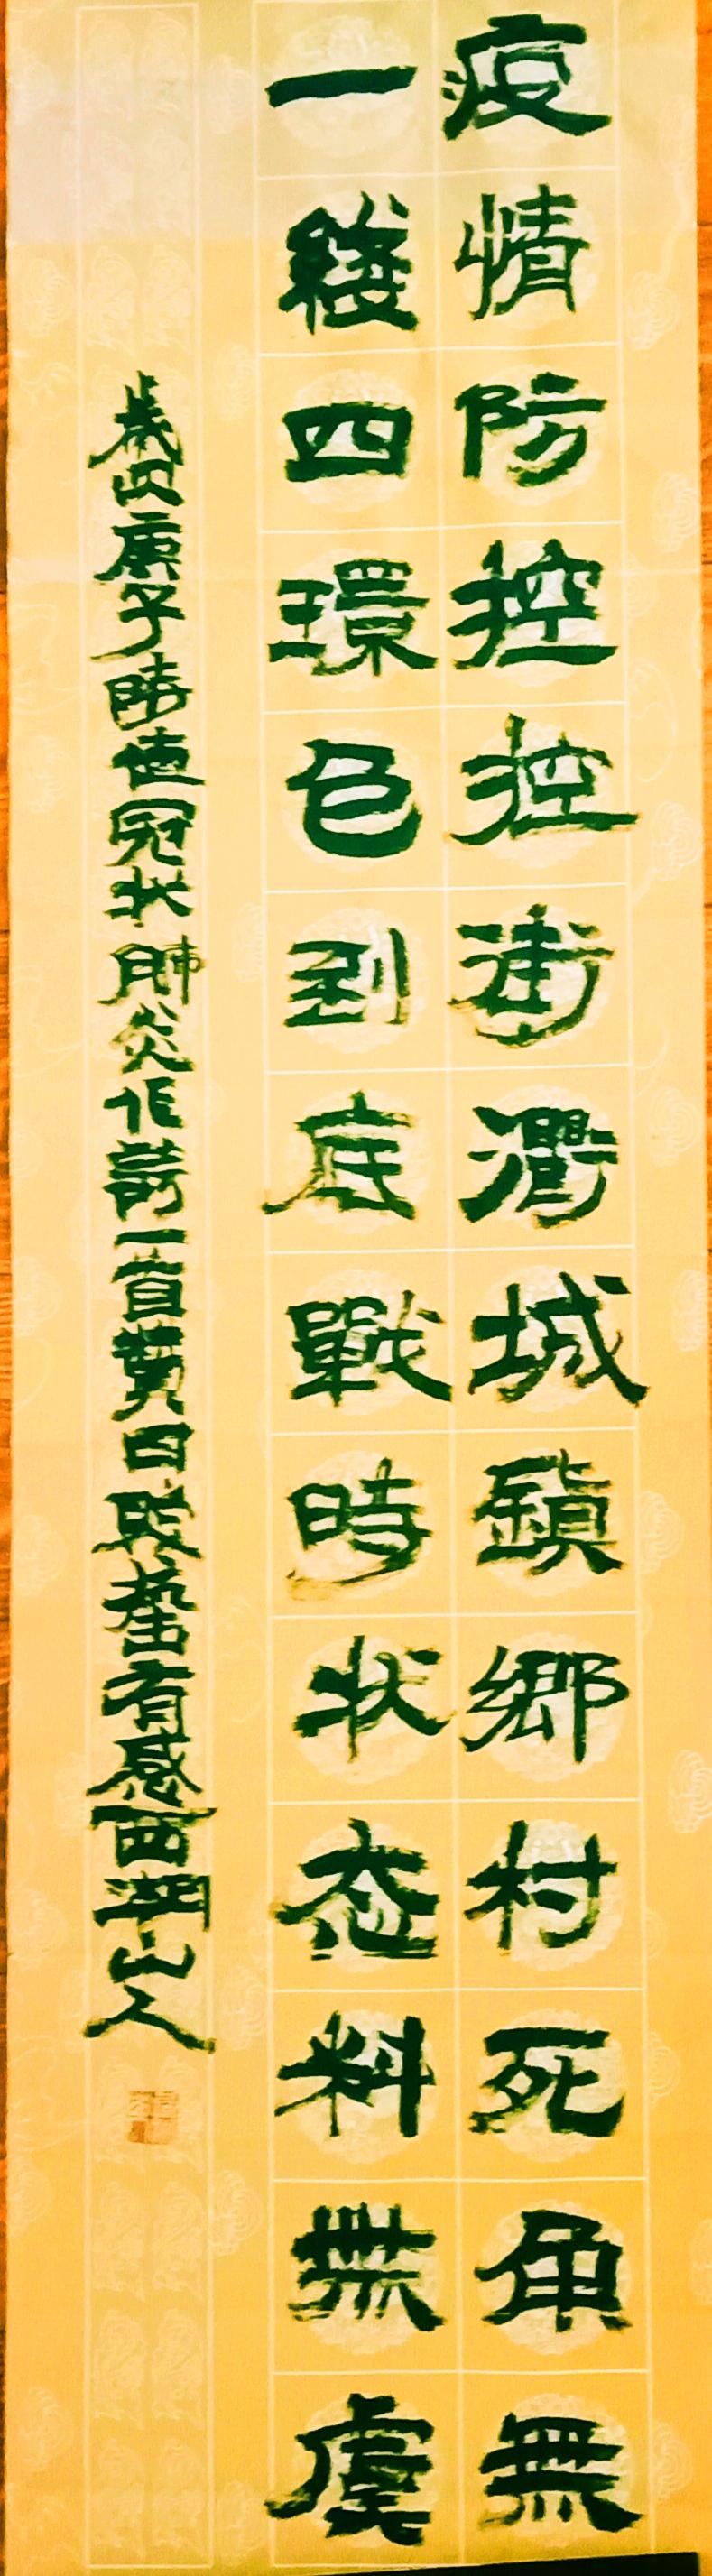 疫情防控控街衢城鎮鄉村死角無
一綫四環色到底戰時状态料無虞
歲次庚子時值冠状肺炎作詩一首黄日聪書有感西湖山人